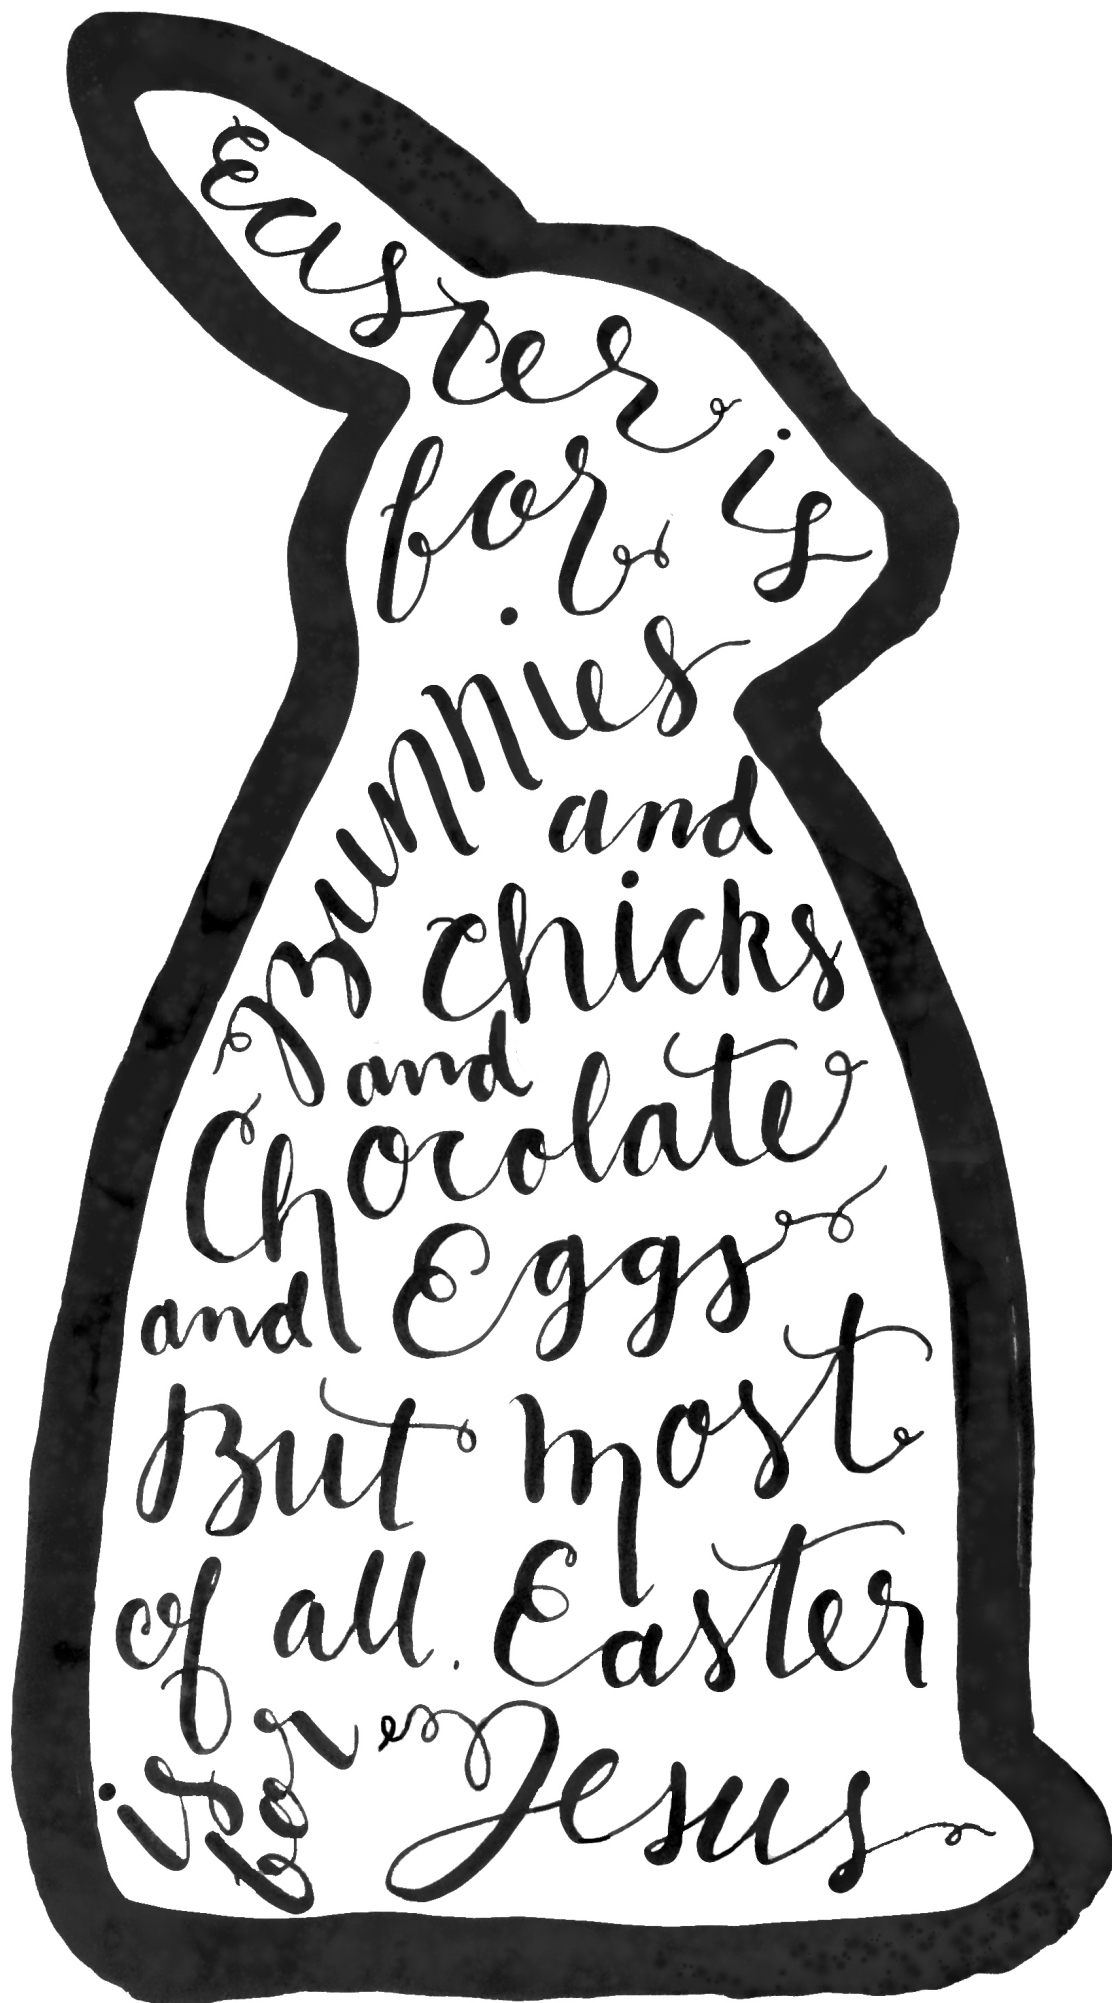 Easter is
for
Bunnies
and
chicks
and
Chocolate
and Eggs
But most
of all. Easter
is for Jesus